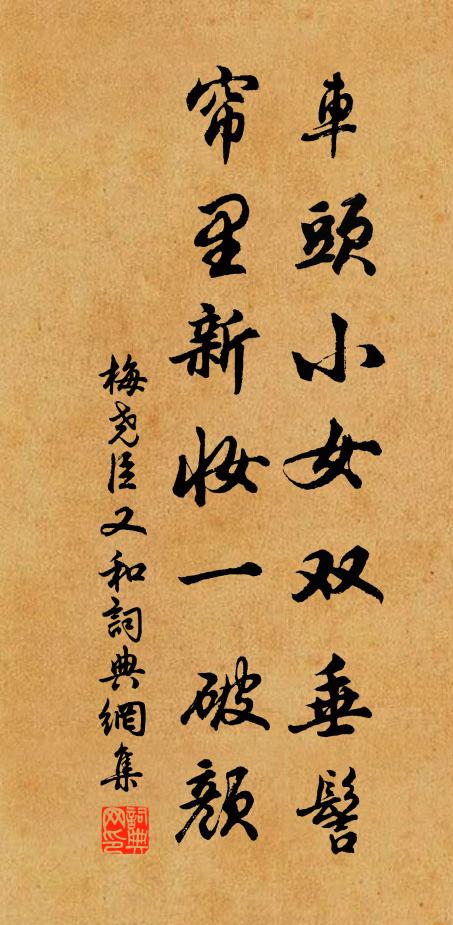 車頭小女双垂髻
帘里新妝一破顏
梅堯臣又和詞典網集
詞典网印